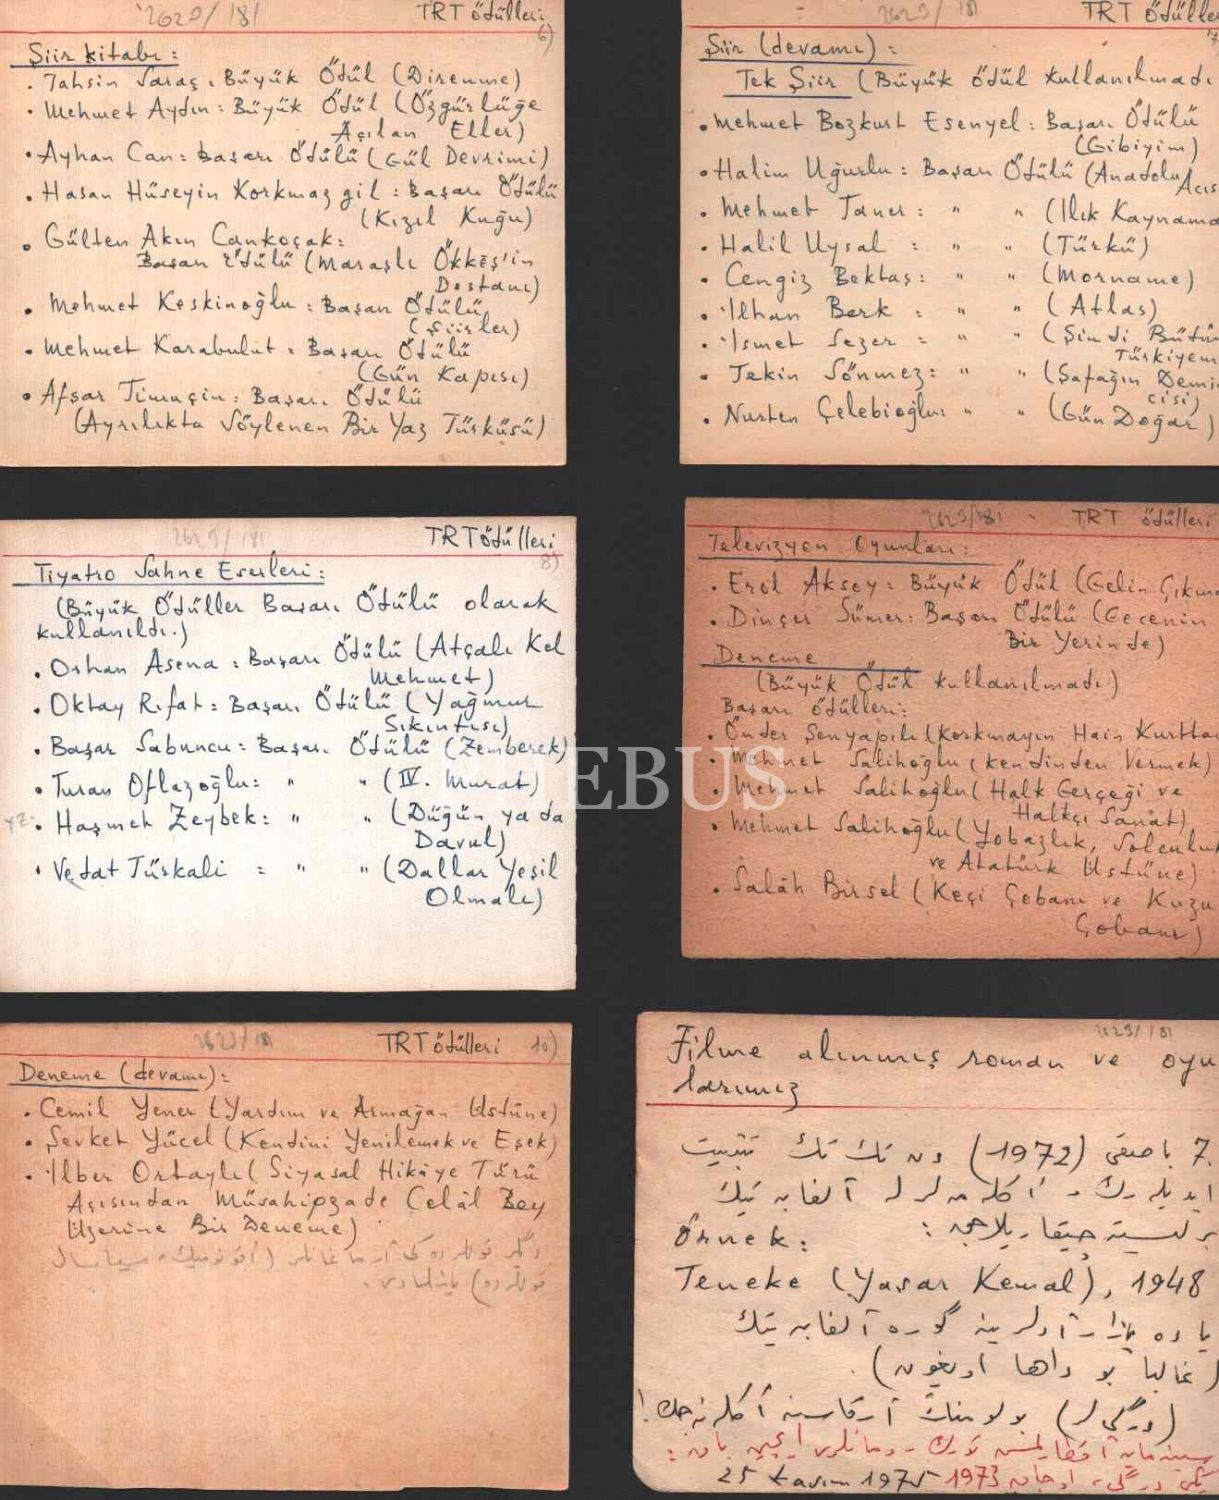 2629/181
TRT ödülleri
6)
Şiir kitabı:
. Tahsin Saraç: Büyük Ödül (Direnme)
. Mehmet Aydın: Büyük Ödül (Özgürlüğe
Açılan Eller)
. Ayhan Can: Başarı Ödülü (Gül Devrimi)
. Hasan Hüseyin Korkmazgil: Başarı Ödülü
(Kızıl Kuğu)
. Gülten Akın Cankoçak:
Başarı Ödülü (Maraşlı Ökkeş'in
Destanı)
. Mehmet Keskinoğlu: Başarı Ödülü
(Şiirler)
. Mehmet Karabulut: Başarı Ödülü
(Gün Kapısı)
. Afşar Timuçin: Başarı Ödülü
(Ayrılıkta Söylenen Bir Yaz Türküsü)
2629/181
TRT ödülle
7
Şiir (devamı):
Tek Şiir (Büyük ödül kullanılmadı
. Mehmet Bozkurt Esenyel: Başarı Ödülü
(Gibiyim)
. Halim Uğurlu: Başarı Ödülü (Anadolu
Acıs
. Mehmet Taner: " " (Ilık Kaynama
. Halil Uysal: " " (Türkü)
. Cengiz Bektaş: " " (Morname)
. İlhan Berk: " " (Atlas)
. İsmet Sezer: " " (Şimdi Bütün
Türkiyem
. Tekin Sönmez: " " (Şafağın Demir
cisi)
. Nurten Çelebioğlu: " " (Gün Doğar)
2629/181
TRT ödülleri
8)
Tiyatro Sahne Eserleri:
(Büyük Ödüller Başarı Ödülü olarak
kullanıldı.)
. Orhan Asena: Başarı Ödülü (Atçalı Kel
Mehmet)
. Oktay Rifat: Başarı Ödülü (Yağmur
Sıkıntısı)
. Başar Sabuncu: Başarı Ödülü (Zemberek)
. Turan Oflazoğlu: " " (IV. Murat)
. Haşmet Zeybek: " " (Düğün ya da
Davul)
. Vedat Türkali: " " (Dallar Yeşil
Olmalı)
2629/181
TRT ödülleri
Televizyon Oyunları:
. Erol Aksoy: Büyük Ödül (Gelin Çıkma
. Dinçer Sümer: Başarı Ödülü (Gecenin
Bir Yerinde)
Deneme
(Büyük Ödül kullanılmadı)
Başarı ödülleri:
. Önder Şenyapılı (Korkmayın Hain Kurttan
. Mehmet Salihoğlu (Kendinden Vermek)
. Mehmet Salihoğlu (Halk Gerçeği ve
Halkçı Sanat)
. Mehmet Salihoğlu (Yobazlık, Solculuk
ve Atatürk Üstüne)
. Salâh Birsel (Keçi Çobanı ve Kuzu
Çobanı)
HEBUS
2629/181
TRT ödülleri
10)
Deneme (devamı):
. Cemil Yener (Yardım ve Armağan Üstüne)
. Şevket Yücel (Kendini Yenilemek ve Eşek)
. İlber Ortaylı (Siyasal Hikâye Türü
Açısından Müsahipzade Celâl Bey
Üzerine Bir Deneme)
2629/181
Filme alınmış roman ve oyu
larımız
7. (1972) تك تك تثبيت
Örnek:
Teneke (Yaşar Kemal), 1948
(غالبا بو داها اويغون).
25 Kasım 1975 1973